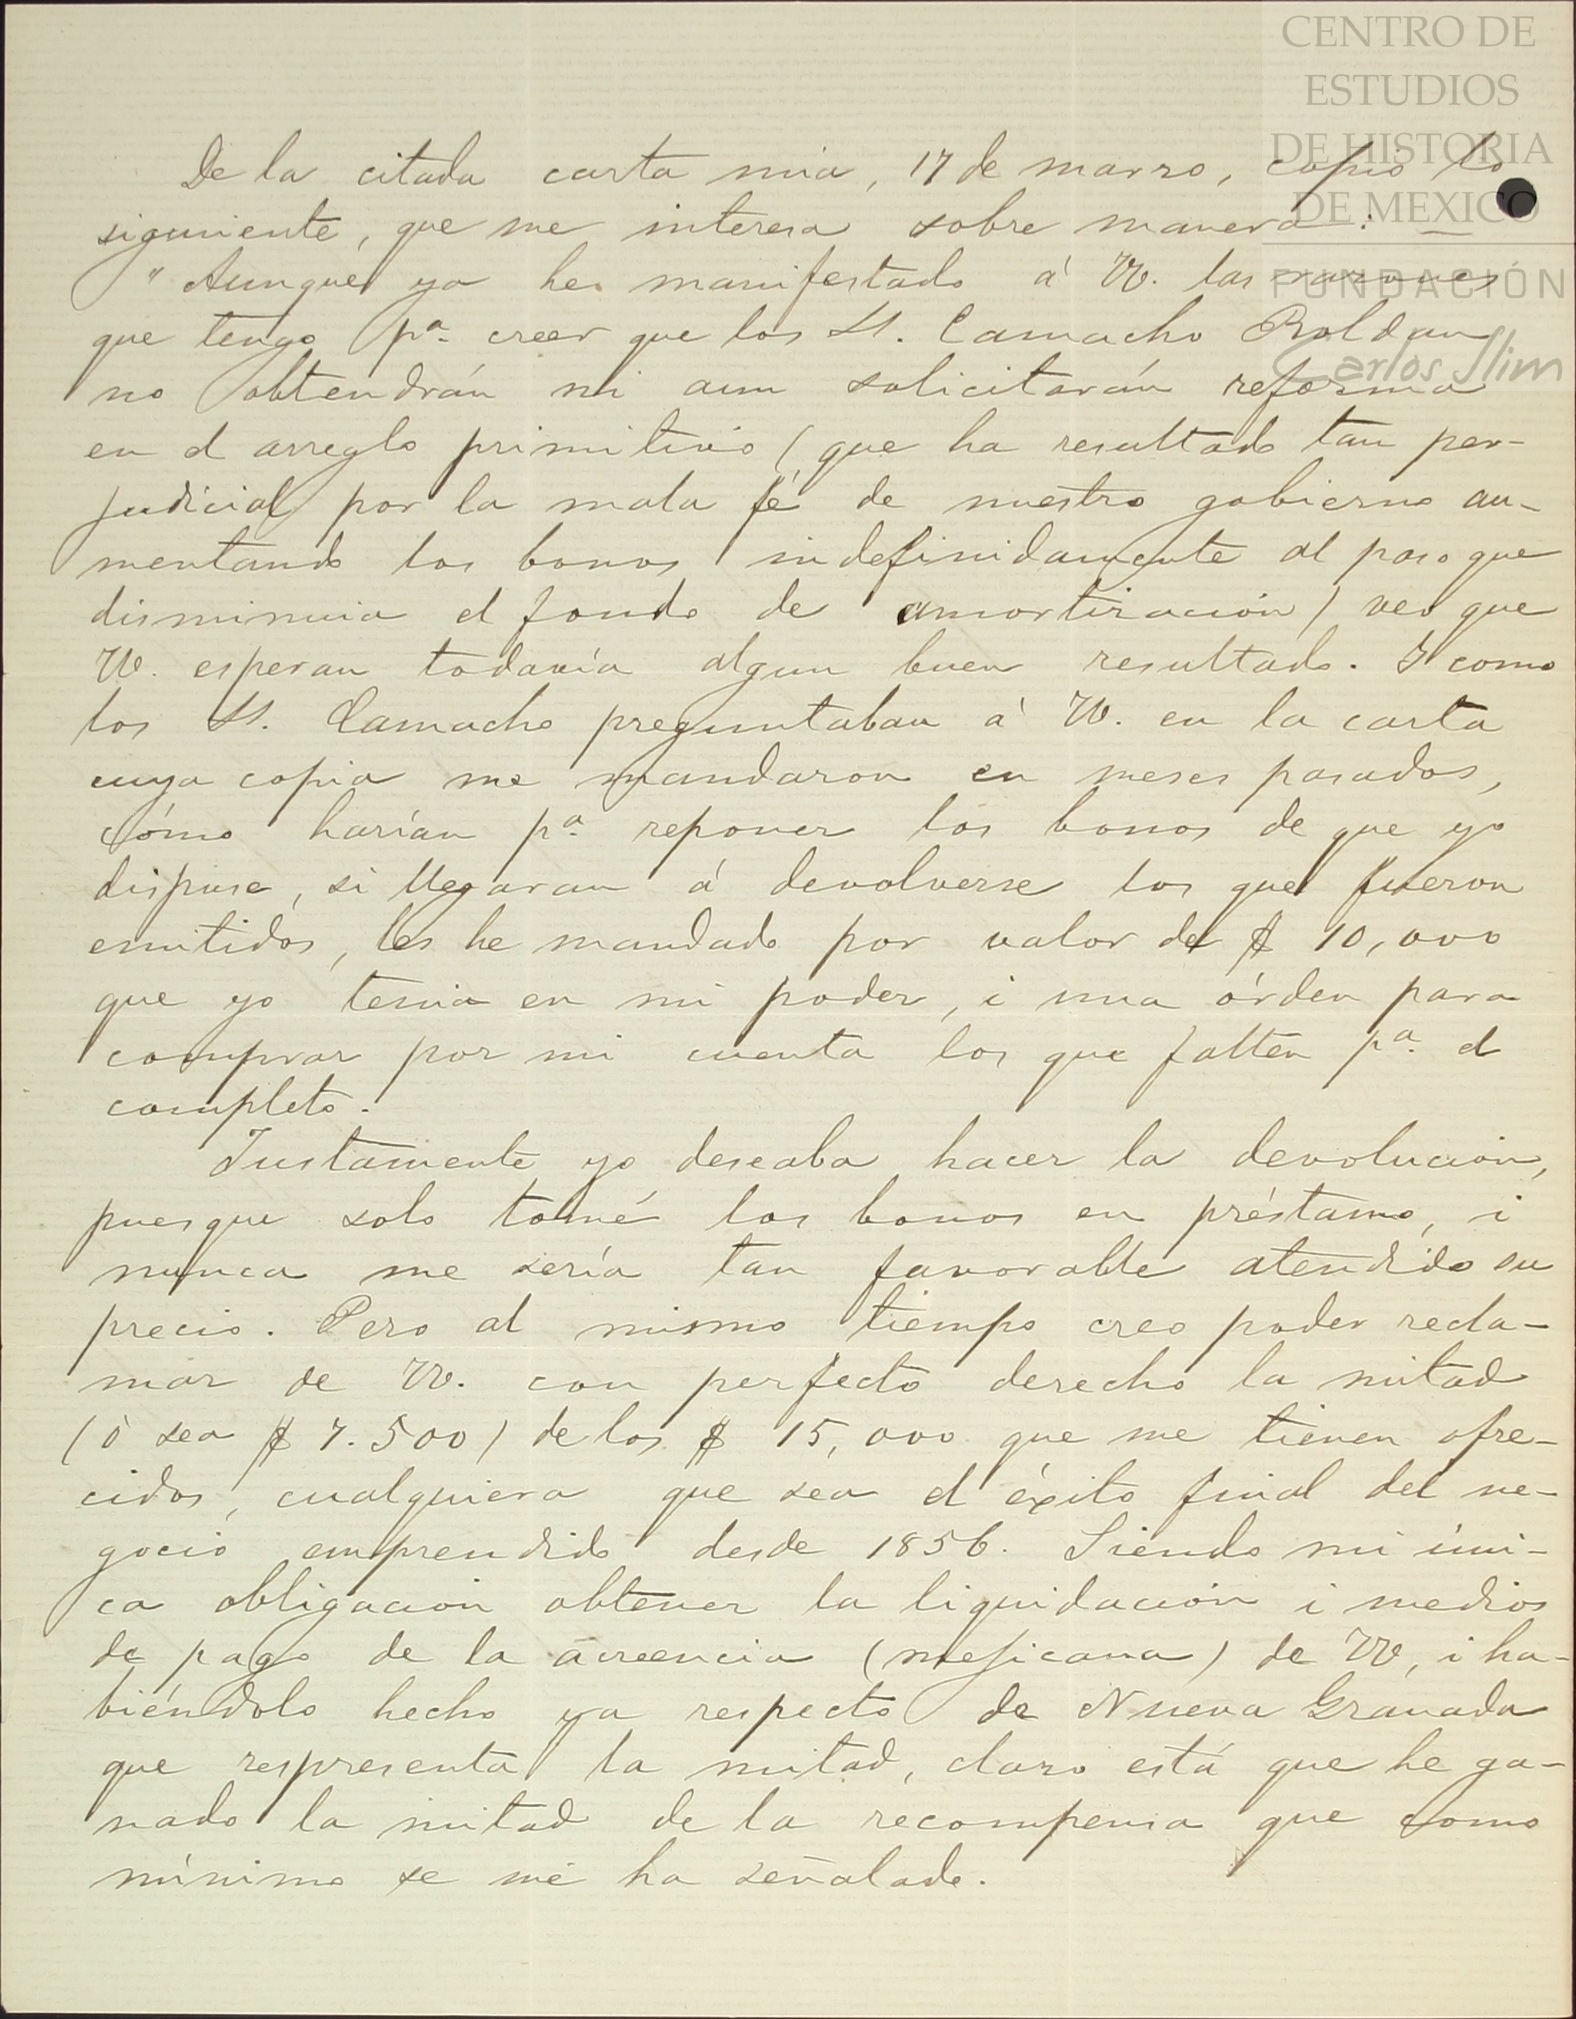 CENTRO DE
ESTUDIOS
DE HISTORIA
DE MEXICO
FUNDACIÓN
Carlos Slim
De la citada carta mia, 17 de marzo, copio lo
siguiente, que me interesa sobre manera:
"Aunque ya he manifestado á VV. las razones
que tengo pa. creer que los SS. Camacho Roldan
no obtendrán ni aun solicitarán reforma
en el arreglo primitivo (que ha resultado tan per-
judicial por la mala fé de nuestro gobierno au-
mentando los bonos indefinidamente al paso que
disminuia el fondo de amortización) veo que
VV. esperan todavía algun buen resultado. I como
los SS. Camacho preguntaban á VV. en la carta
cuya copia me mandaron en meses pasados,
cómo harían pa. reponer los bonos de que yo
dispuse, si llegaran á devolverse los que fueron
emitidos, les he mandado por valor de $ 10,000
que yo tenia en mi poder, i una órden para
comprar por mi cuenta los que falten pa. el
completo.
Justamente yo deseaba hacer la devolucion,
puesque solo tomé los bonos en préstamo, i
nunca me sería tan favorable atendido su
precio. Pero al mismo tiempo creo poder recla-
mar de VV. con perfecto derecho la mitad
(ó sea $ 7.500) de los $ 15,000 que me tienen ofre-
cidos, cualquiera que sea el éxito final del ne-
gocio emprendido desde 1856. Siendo mi úni-
ca obligación obtener la liquidación i medios
de pago de la acreencia (mejicana) de VV, i ha-
biéndolo hecho ya respecto de Nueva Granada
que respresenta la mitad, claro está que he ga-
nado la mitad de la recompensa que como
mínimo se me ha señalado.